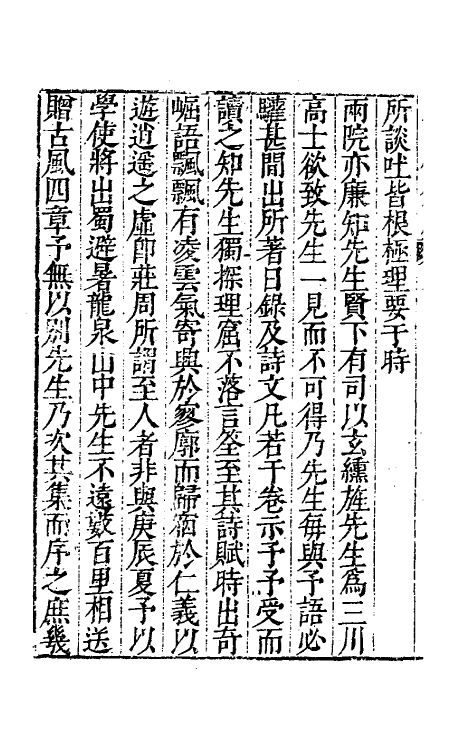 所談吐皆根極理要于時
兩院亦廉知先生賢下有司以玄纁旌先生爲三川
高士欲致先生一見而不可得乃先生每與予語必
驩甚間出所著日錄及詩文凡若干卷示予予受而
讀之知先生獨探理窟不落言筌至其詩賦時出奇
崛語飄飄有凌雲氣寄興於寥廓而歸宿於仁義以
遊逍遥之虛卽莊周所謂至人者非與庚辰夏予以
學使將出蜀避暑龍泉山中先生不遠數百里相送
贈古風四章予無以别先生乃次其集而序之庶幾